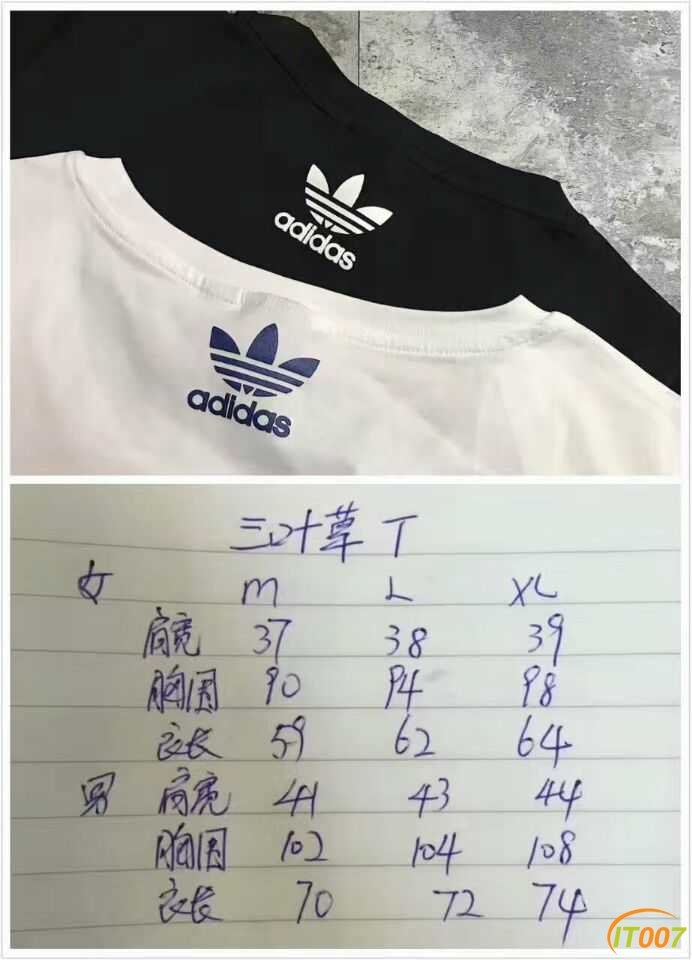 adidas
adidas
三叶草 T
女 M L XL
肩宽 37 38 39
胸围 90 94 98
衣长 59 62 64
男 肩宽 41 43 44
胸围 102 104 108
衣长 70 72 74
IT007